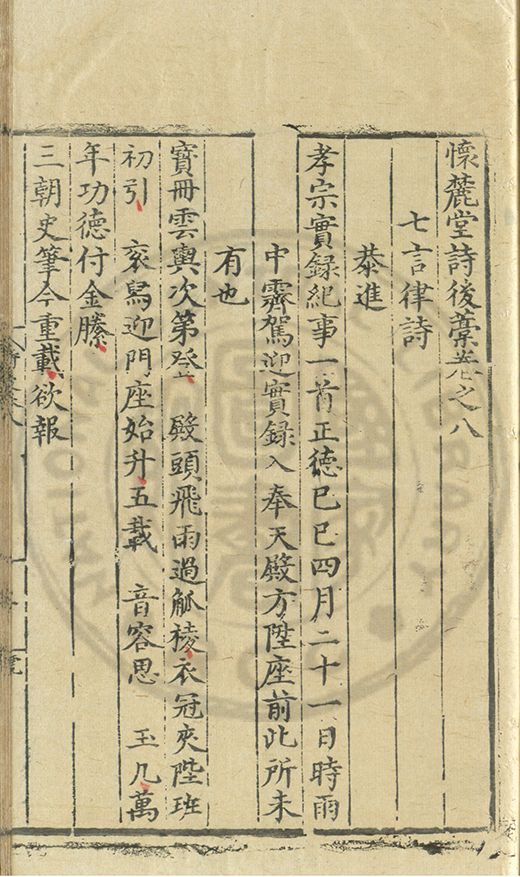 懷麓堂詩後藁卷之八
七言律詩
恭進
孝宗實録紀事一首正德己巳四月二十一日時雨
中霽駕迎實録入奉天殿方陞座前此所未
有也
寶冊雲輿次第登　殿頭飛雨過觚棱衣冠夾陛班
初引　衮舄迎門座始升五載　音容思　玉几萬
年功德付金縢
三朝史筆今重載欲報